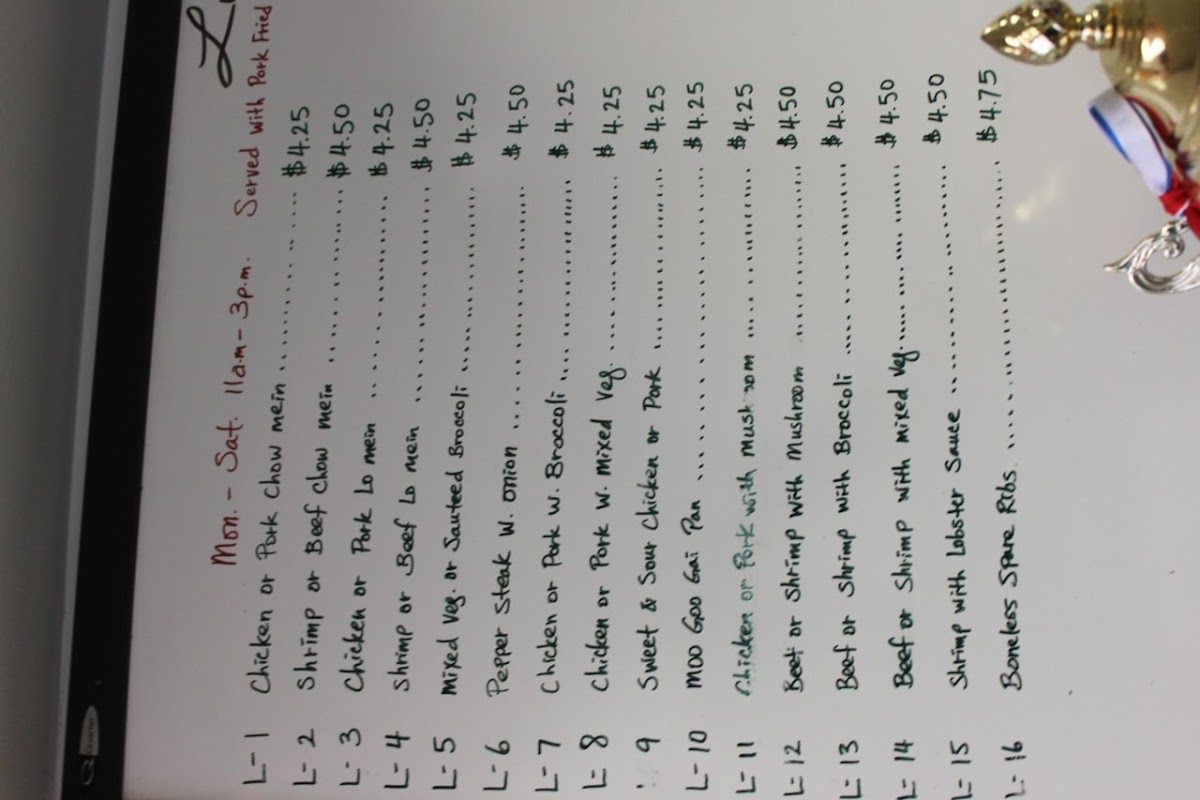 L
Mon. - Sat. 11a.m - 3p.m. Served with Pork Fried
L- 1 Chicken or Pork Chow mein ..... $4.25
L- 2 Shrimp or Beef Chow mein ..... $4.50
L- 3 Chicken or Pork Lo mein ..... $4.25
L- 4 Shrimp or Beef Lo mein ..... $4.50
L- 5 Mixed Veg. or Sauteed Broccoli ..... $4.25
L- 6 Pepper Steak W. onion ..... $4.50
L- 7 Chicken or Pork W. Broccoli ..... $4.25
L- 8 Chicken or Pork W. Mixed Veg. ..... $4.25
9 Sweet & Sour Chicken or Pork ..... $4.25
L- 10 Moo Goo Gai Pan ..... $4.25
L- 11 Chicken or Pork with Mush om ..... $4.25
L- 12 Beef or Shrimp with Mushroom ..... $4.50
L- 13 Beef or Shrimp with Broccoli ..... $4.50
L- 14 Beef or Shrimp with mixed Veg. ..... $4.50
L- 15 Shrimp with Lobster Sauce ..... $4.50
L- 16 Boneless Spare Ribs ..... $4.75
Quartet